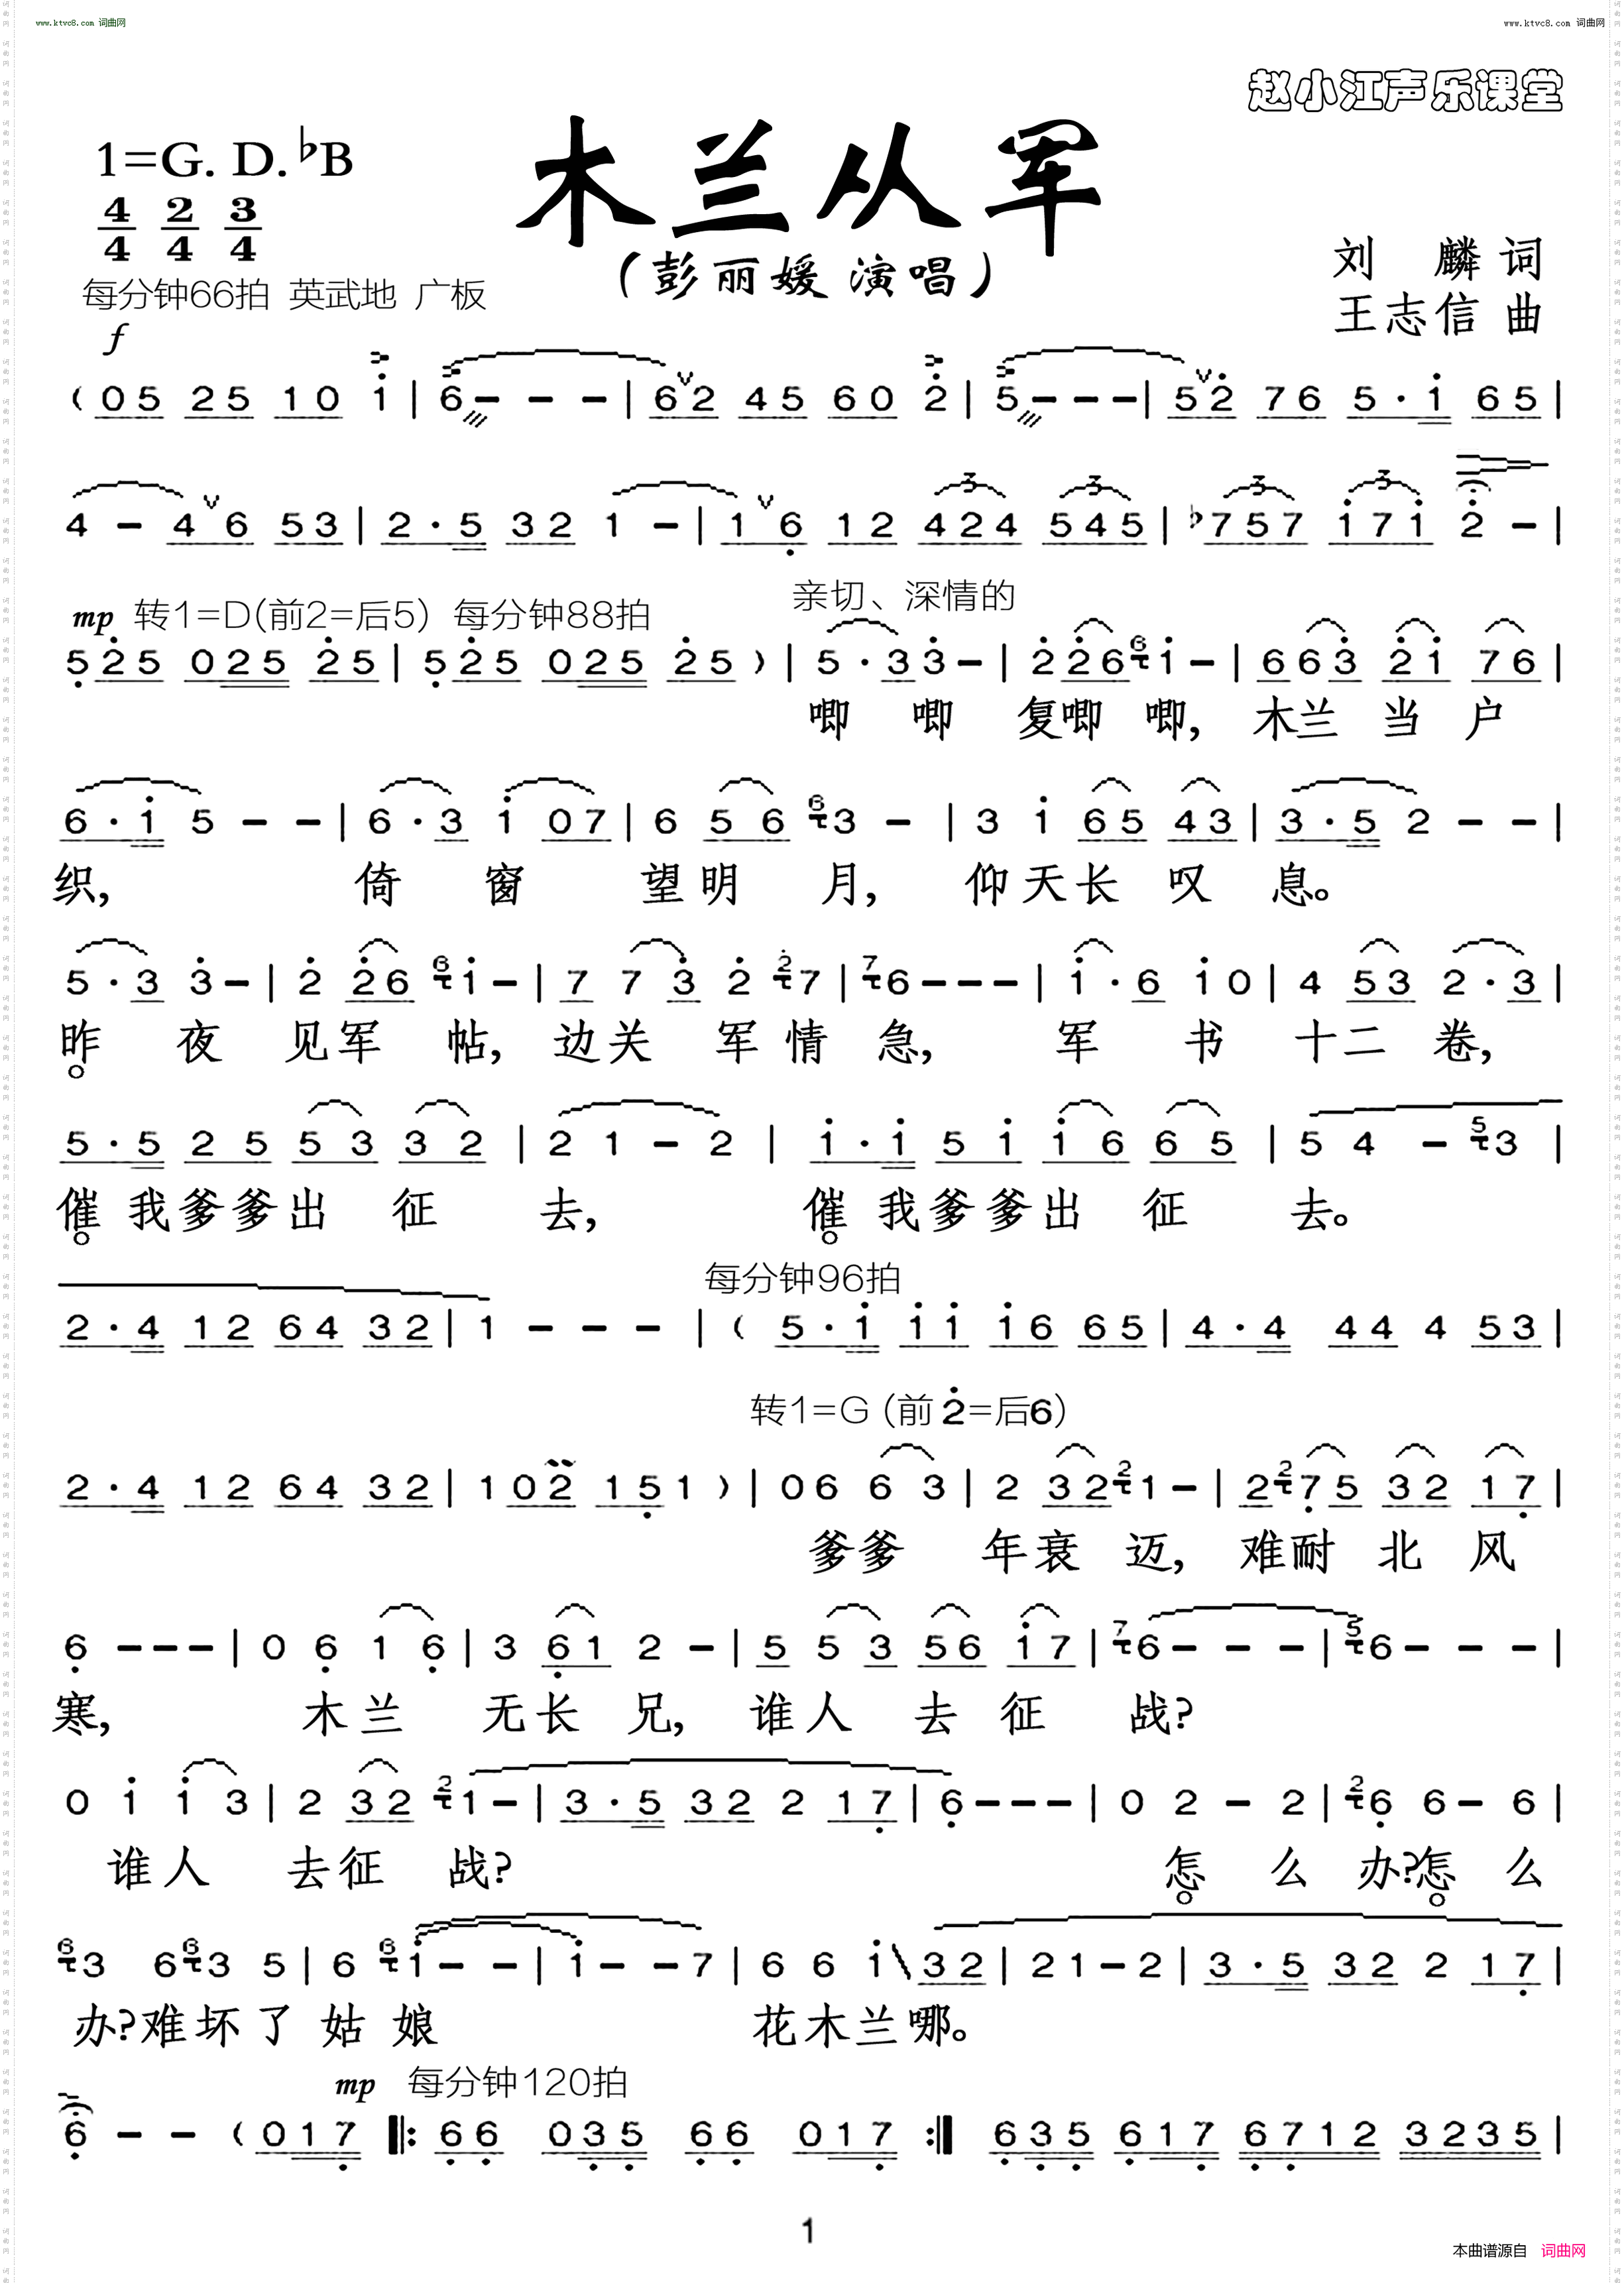 www.ktvc8.com 词曲网
www.ktvc8.com 词曲网
赵小江声乐课堂
1=G. D. ♭B
木兰从军
4/4 2/4 3/4
(彭丽媛 演唱)
刘 麟 词
每分钟66拍 英武地 广板
王志信 曲
f
(05 25 10 i | 6 - - - | 62 45 60 2̇ | 5 - - - | 52̇ 76 5·i 65 |
4 - 46 53 | 2·5 32 1 - | 16̣ 12 424 545 | ♭757 i7i 2̇ - |
亲切、深情的
mp 转1=D(前2=后5) 每分钟88拍
5̣2̇5 02̇5 2̇5 | 5̣2̇5 02̇5 2̇5 ) | 5·33̇ - | 2̇2̇6 i - | 663̇ 2̇i 76 |
唧 唧 复唧 唧, 木兰 当 户
6·i 5 - - | 6·3 i 07 | 6 56 3 - | 3 i 65 43 | 3·5 2 - - |
织, 倚 窗 望明 月, 仰天长 叹 息。
5·3 3̇ - | 2̇ 2̇6 i - | 7 7 3̇ 2̇ 7 | 6 - - - | i·6 i0 | 4 53 2·3 |
昨 夜 见军 帖, 边关 军情 急, 军 书 十二 卷,
5·5 25 53 32 | 2 1 - 2 | i·i 5i i6 65 | 5 4 - 3 |
催 我爹爹出 征 去, 催 我爹爹出 征 去。
每分钟96拍
2·4 12 64 32 | 1 - - - | ( 5·i ii i6 65 | 4·4 44 4 53 |
转1=G (前2̇=后6)
2·4 12 64 32 | 102 15̣1 ) | 06 6 3 | 2 32 1 - | 27̣5 32 17̣ |
爹爹 年衰 迈, 难耐 北 风
6̣ - - - | 0 6̣ 1 6̣ | 3 6̣1 2 - | 5 5 3 56 i7 | 6 - - - | 6 - - - |
寒, 木兰 无长 兄, 谁人 去 征 战?
0 i i 3 | 2 32 1 - | 3·5 32 2 17̣ | 6̣ - - - | 0 2 - 2 | 6̣ 6 - 6 |
谁人 去征 战? 怎 么 办?怎 么
3 6 3 5 | 6 i - - | i - - 7 | 6 6 i 32 | 21 - 2 | 3·5 32 2 17̣ |
办?难坏了 姑 娘 花木兰哪。
mp 每分钟120拍
6̣ - - (017̣ ‖: 6̣6̣ 03̣5̣ 6̣6̣ 017̣ :‖ 6̣3̣5̣ 6̣17̣ 6̣7̣12 3235 |
1
本曲谱源自 词曲网